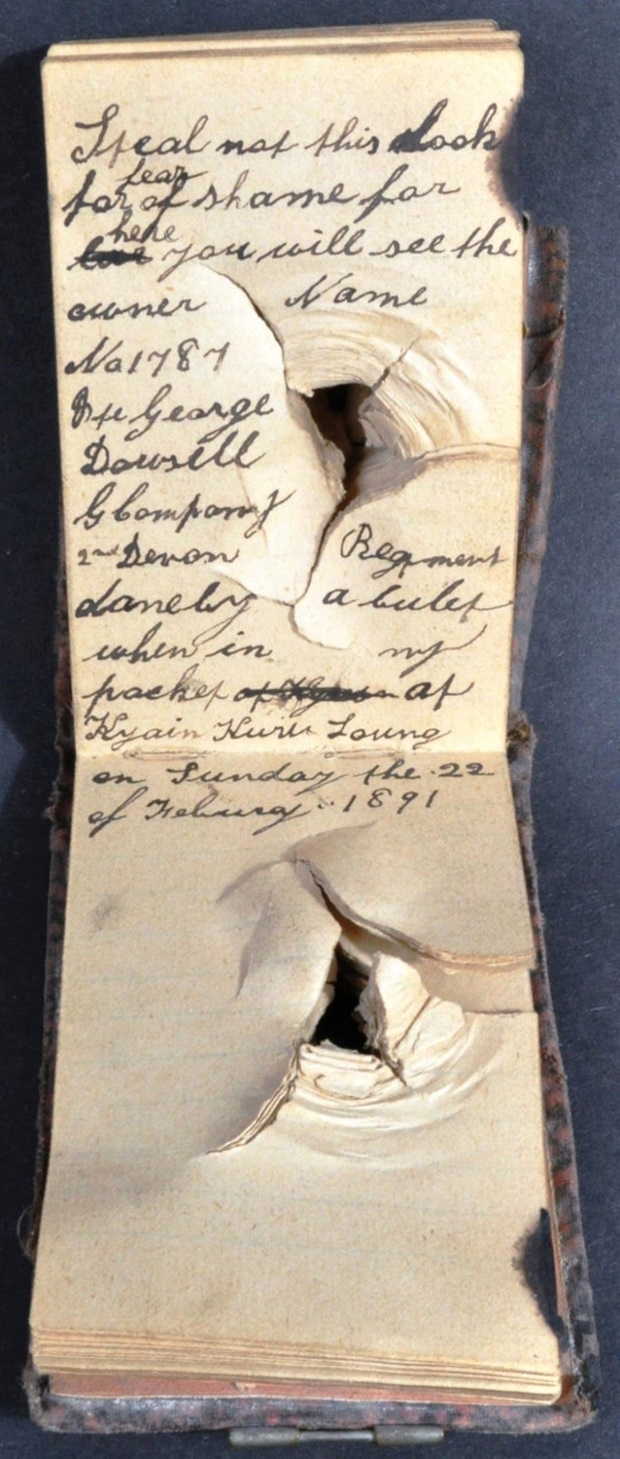 Steal not this book
for fear of shame for
here you will see the
owner Name
No 1787
Pte George
Dowsell
G Company
2nd Devon Regment
done by a bulet
when in my
pocket at
Kyain Kuin Loung
on Sunday the 22
of Feburey 1891